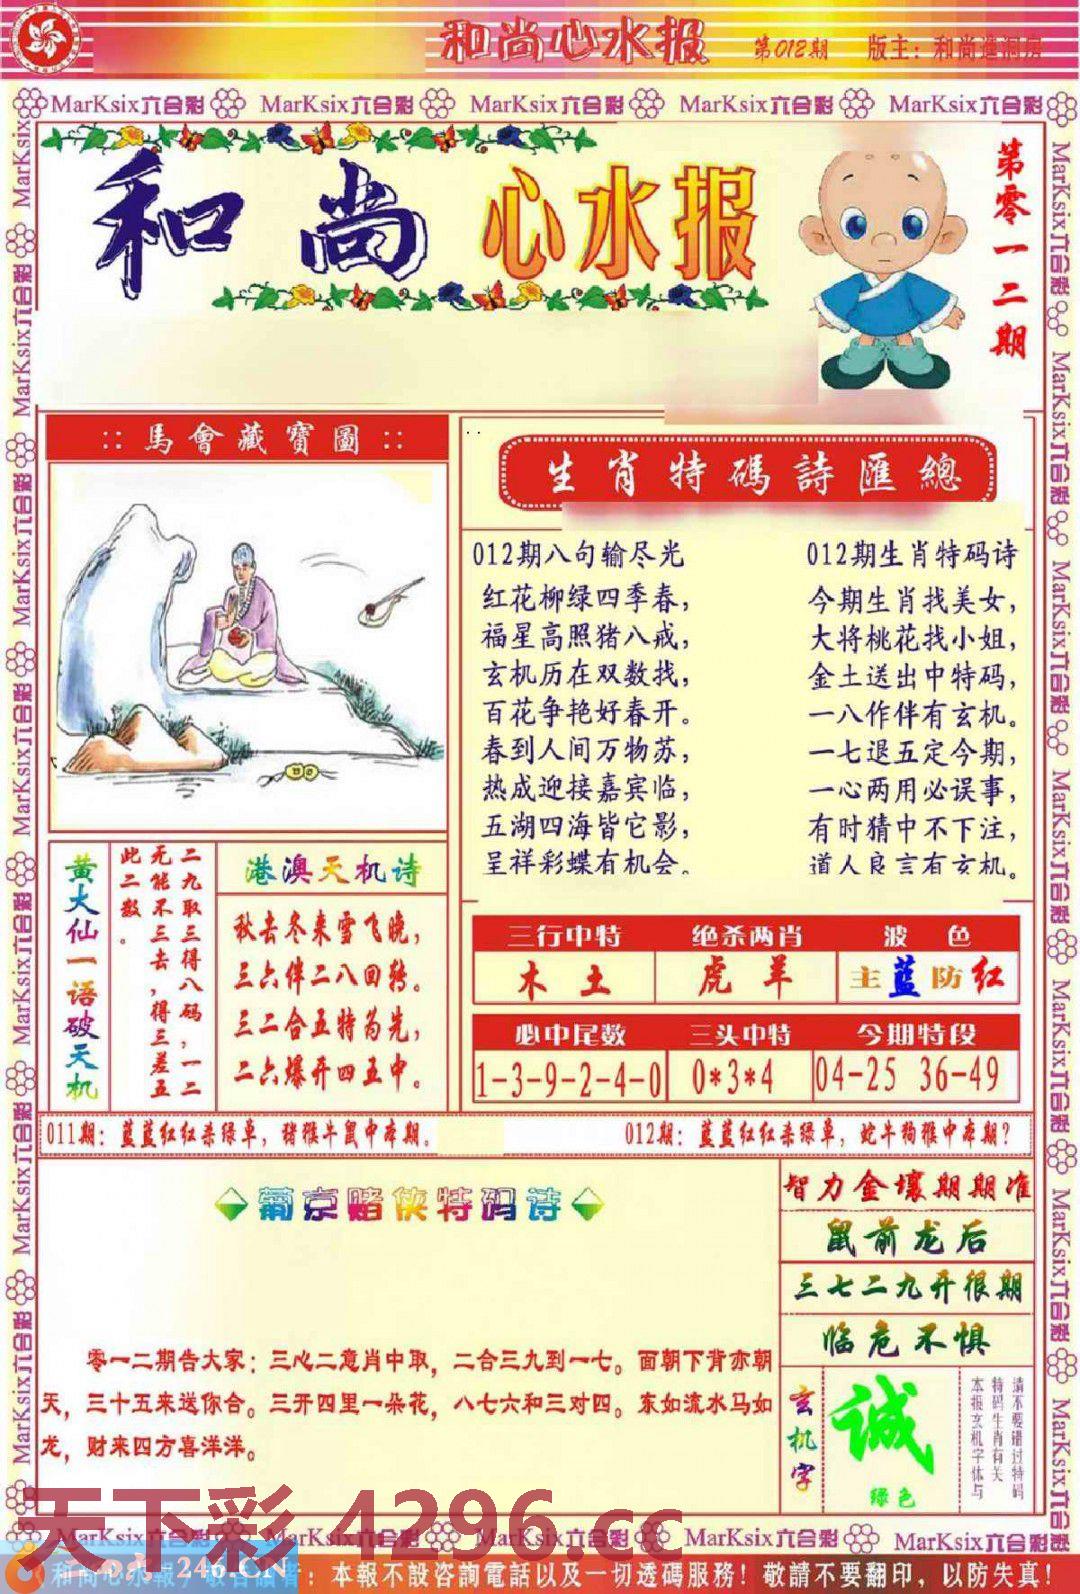 和尚心水报
第012期
版主：和尚進洞房
MarKsix六合彩 MarKsix六合彩 MarKsix六合彩 MarKsix六合彩 MarKsix六合彩
和尚 心水报
第零一二期
::馬會藏寶圖::
生肖特碼詩匯總
012期八句输尽光
红花柳绿四季春，
福星高照猪八戒，
玄机历在双数找，
百花争艳好春开。
春到人间万物苏，
热成迎接嘉宾临，
五湖四海皆它影，
呈祥彩蝶有机会。
012期生肖特码诗
今期生肖找美女，
大将桃花找小姐，
金土送出中特码，
一八作伴有玄机。
一七退五定今期，
一心两用必误事，
有时猜中不下注，
道人良言有玄机。
黄大仙一语破天机
二九取三得八码，一二
无能不三去，得三差五
此二数。
港澳天机诗
秋去冬来雪飞晚，
三六伴二八回转。
三二合五特为先，
二六爆开四五中。
三行中特 绝杀两肖 波色
木土 虎羊 主蓝防红
必中尾数 三头中特 今期特段
1-3-9-2-4-0 0*3*4 04-25 36-49
011期：蓝蓝红红杀绿单，猪猴牛鼠中本期。
012期：蓝蓝红红杀绿单，蛇牛狗猴中本期？
葡京赌侠特码诗
零一二期告大家：三心二意肖中取，二合三九到一七。面朝下背亦朝
天，三十五来送你合。三开四里一朵花，八七六和三对四。东如流水马如
龙，财来四方喜洋洋。
智力金壤期期准
鼠前龙后
三七二九开很期
临危不惧
玄机字
诚
绿色
请不要错过特码
特码生肖有关
本报玄机字体与
天下彩 4296.cc
MarKsix六合彩 MarKsix六合彩 MarKsix六合彩 MarKsix六合彩 MarKsix六合彩
二四六 246.CN
和尚心水報，敬告讀者：本報不設咨詢電話以及一切透碼服務！敬請不要翻印，以防失真！